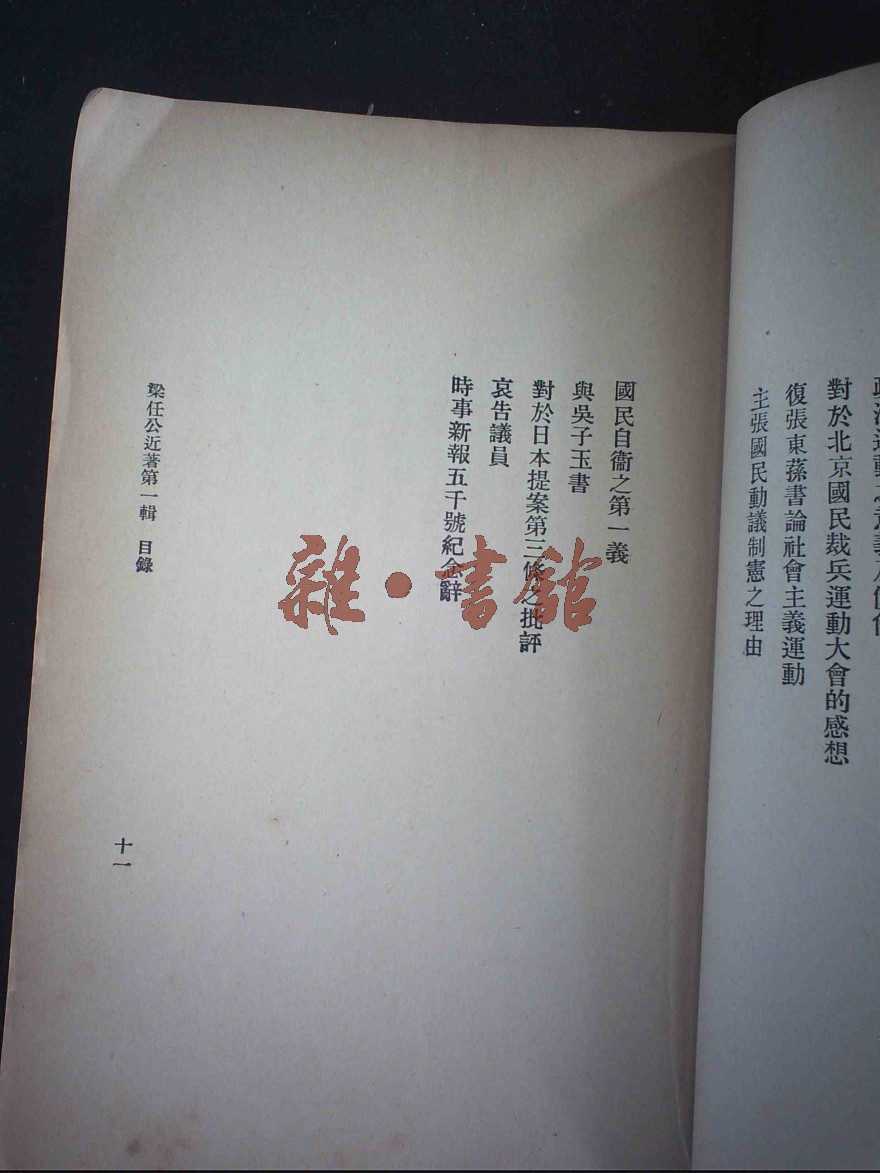 對於北京國民裁兵運動大會的感想
復張東蓀書論社會主義運動
主張國民動議制憲之理由
國民自衞之第一義
與吳子玉書
對於日本提案第三條之批評
哀告議員
時事新報五千號紀念辭
梁任公近著第一輯 目錄
十一
雜·書館